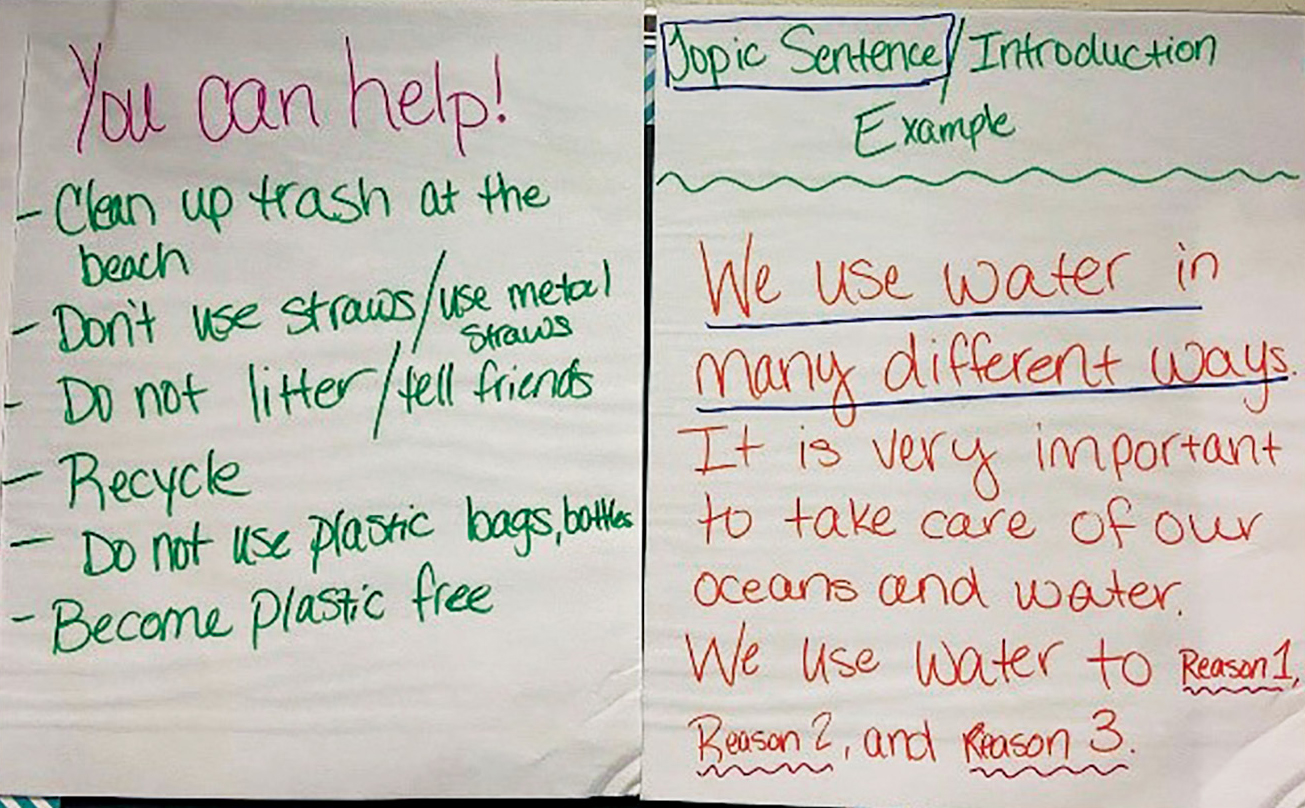 You can help!
- Clean up trash at the
beach
- Don't use straws/use metal
straws
- Do not litter/tell friends
- Recycle
- Do not use plastic bags, bottles
- Become plastic free
Topic Sentence/Introduction
Example
We use water in
many different ways.
It is very important
to take care of our
oceans and water.
We use water to Reason 1,
Reason 2, and Reason 3.